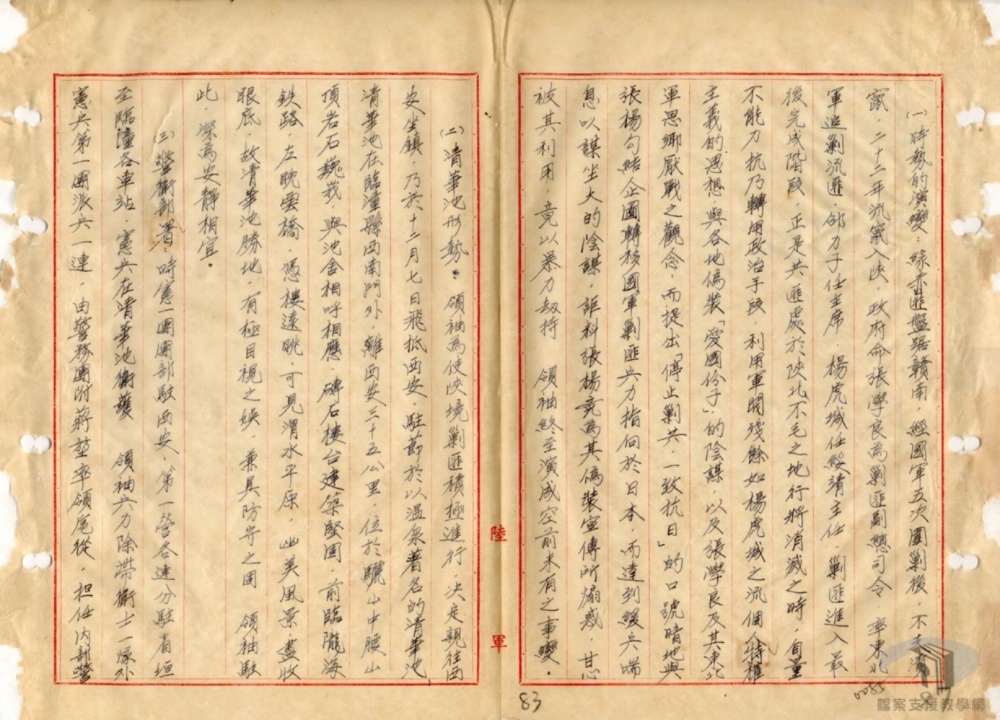 (一)時勢的演變:緣赤匪盤踞贛南,經國軍五次圍剿後,不
竄,二十二年流竄入陝,政府命張學良為剿匪副總司令,率東北
軍追剿流匪,邵力子任主席,楊虎城任綏靖主任,剿匪進入最
後完成階段,正是共匪處於陝北不毛之地行將消滅之時,自量
不能力抗乃轉用政治手段 利用軍閥殘餘如楊虎城之流個人特權
主義的思想,與各地偽裝「愛國份子」的陰謀,以及張學良及其東北
軍思鄉厭戰之觀念,而提出「停止剿共,一致抗日」的口號暗地與
張楊勾結企圖轉移國軍剿匪兵力指向於日本,而達到緩兵喘
息以謀坐大的陰謀,詎料張楊竟為其偽裝宣傳所煽惑,甘心
被其利用,竟以暴力劫持 領袖終至演成空前未有之事變。
(二)清華池形勢。 領袖為使陝境剿匪積極進行,決定親往西
安坐鎮,乃於十二月七日飛抵西安,駐節於以溫泉著名的清華池,
清華池在臨潼縣西南門外,離西安三十五公里,位於驪山中腰,山
頂岩石巍峩,與池舍相呼相應,磚石樓台建築堅固,前臨隴海
鐵路,左眺雲橋,憑樓遠眺,可見渭水平原,幽美風景,盡收
眼底,故清華池勝地,有極目視之娛,兼具防守之固 領袖駐
此,深為安靜相宜。
(三)警衛部署,時憲一團團部駐西安,第一營各連分駐省垣
至臨潼各車站,憲兵在清華池衛護 領袖兵力除帶衛士一隊外
憲兵第一團派兵一連,由警務團附蔣堃率領扈從,担任內部警
陸軍
83
0085
檔案支援教學網